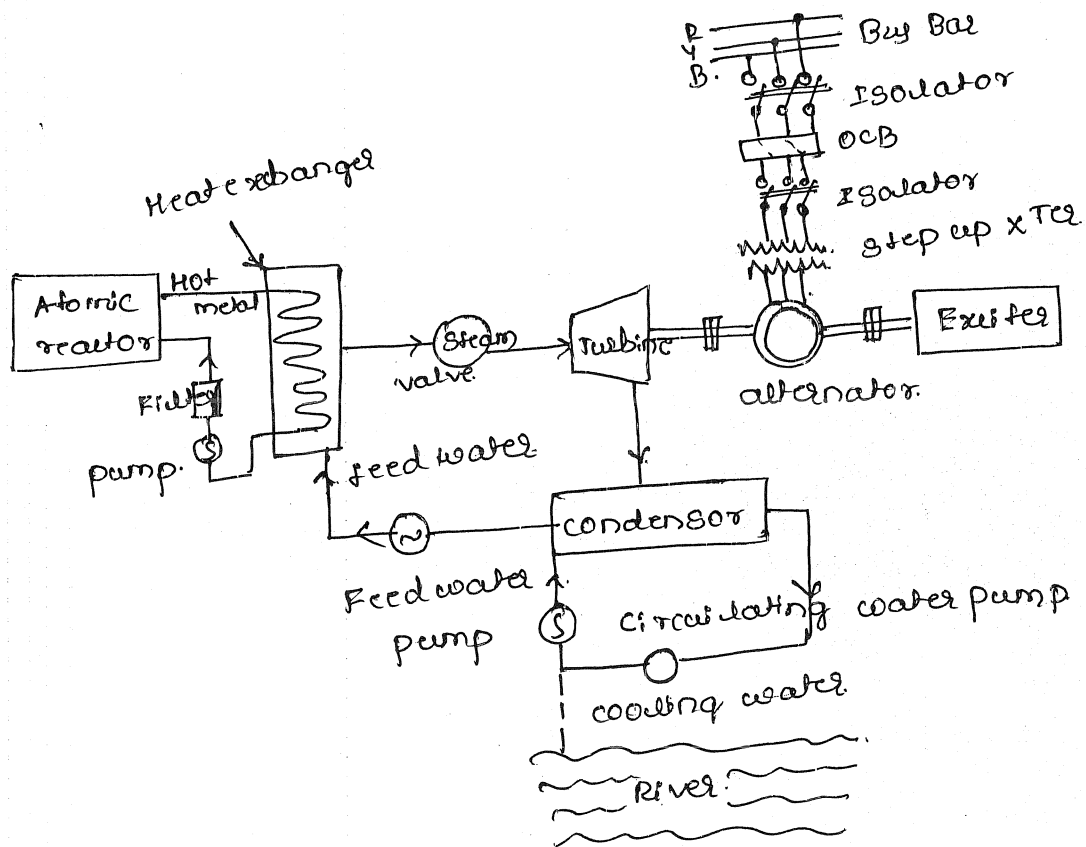 R
Y
B.
Bus Bar
Isolator
OCB
Isolator
Step up x Ter
Heat exchanger
Hot
metal
Atomic
reactor
Filter
pump.
Steam
valve.
Turbine
alternator.
Exciter
feed water
condensor
Feed water
pump
Circulating water pump
cooling water
River.